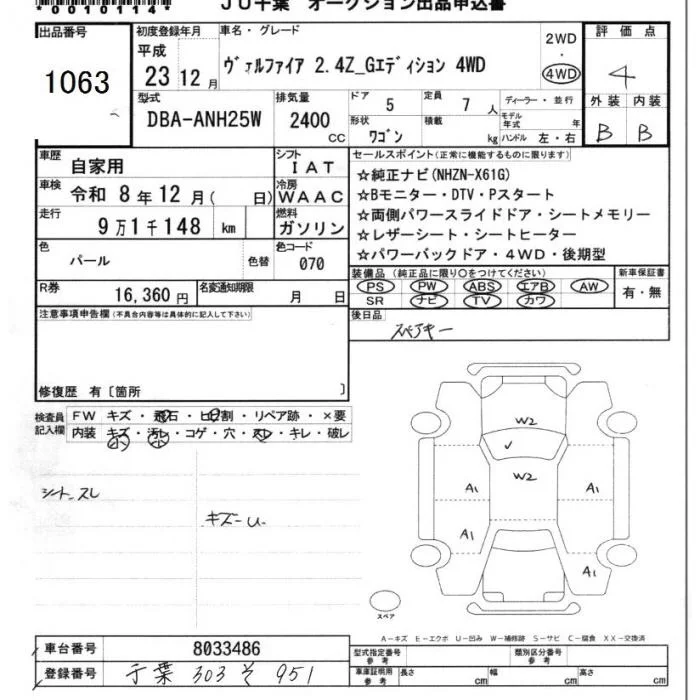 *00010114*
JU千葉 オークション出品申込書
出品番号 初度登録年月 車名・グレード 2WD・4WD 評価点
1063 平成 23 12月 ヴェルファイア 2.4Z_Gエディション 4WD 4
型式 排気量 ドア 5 定員 7人 ディーラー・並行 外装 内装
DBA-ANH25W 2400 CC 形状 ワゴン 積載 kg モデル年式 年 ハンドル 左・右 B B
車歴 自家用 シフト IAT セールスポイント(正常に機能するものに限ります)
車検 令和 8年 12月( 日) 冷房 WAAC ☆純正ナビ(NHZN-X61G)
☆Bモニター・DTV・Pスタート
走行 9万1千148 km 燃料 ガソリン ☆両側パワースライドドア・シートメモリー
☆レザーシート・シートヒーター
色 パール 色替 色コード 070 ☆パワーバックドア・4WD・後期型
装備品(純正品に限り○をつけてください) 新車保証書
PS PW ABS エアB AW 有・無
SR ナビ TV カワ
R券 16,360円 名変通知期限 月 日
注意事項申告欄(不具合内容等は具体的に記入して下さい) 後日品
スペアキー
修復歴 有〔箇所 〕
検査員記入欄 FW キズ・飛石・ヒビ割・リペア跡・×要
内装 キズ・汚レ・コゲ・穴・スレ・キレ・破レ
シートスレ
キズーU
W2
W2
A1 A1
A1
A1
スペア
A-キズ E-エクボ U-凹み W-補修跡 S-サビ C-腐食 XX-交換済
車台番号 8033486 型式指定番号 参考 類別区分番号 参考
登録番号 千葉 303 そ 951 車庫証明用 参考 長さ cm 幅 cm 高さ cm